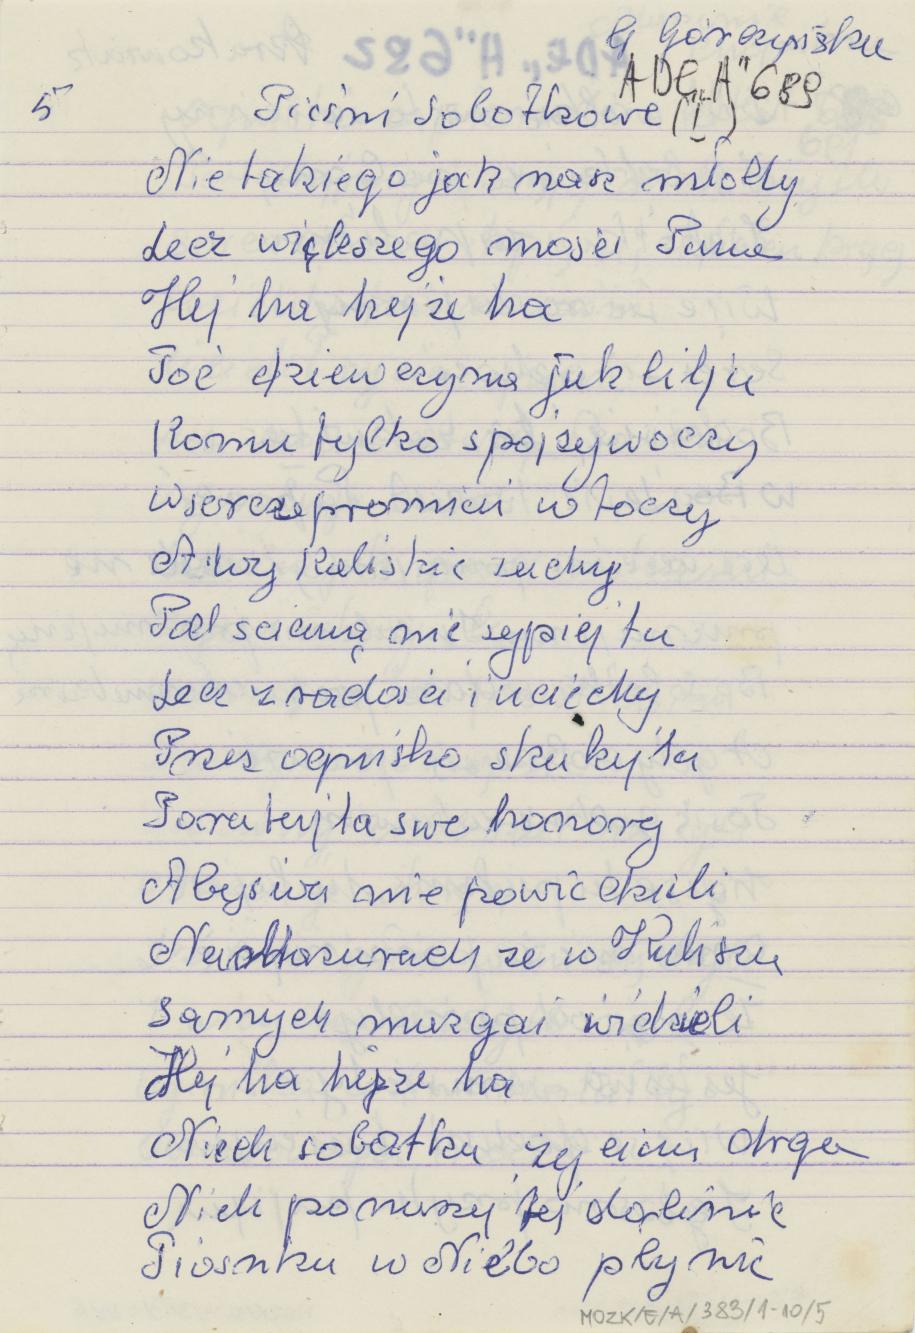 G Górczyńska
ADE „A" 689
5 Pieśni Sobótkowe (1)
Nie takiego jak nasz młody
Lecz większego mości Pana
Hej ha hejże ha
Toć dziewczyna jak lilja
Komu tylko spojży w oczy
W serce promień w toczy
A wy Kaliskie zuchy
Pod scianą nie sypiejta
Lecz z radości i uciechy
Przez ognisko skakejta
Poratujta swe honory
Abyśwa nie powiedzieli
Na Mazurach że w Kaliszu
Samych mazgai widzieli
Hej ha hejże ha
Niech sobótka życiem drga
Nich ponuszej tej dolinie
Piosnka w Niebo płynie
MOZK/E/A/383/1-10/5